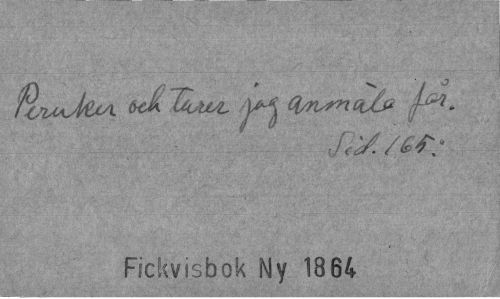 Peruker och turer jag anmäla får.
Sid. 165:
Fickvisbok Ny 1864